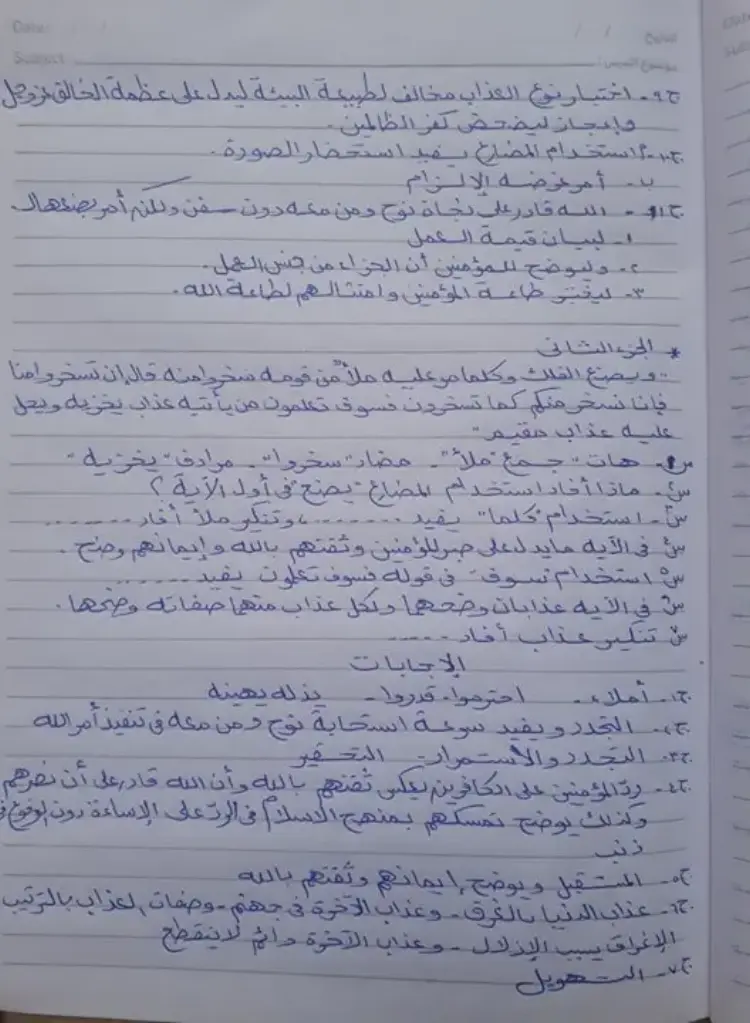 Date: / /
Subject:
موضوع الدرس:
ج٩- اختيار نوع العذاب مخالف لطبيعة البيئة ليدل على عظمة الخالق عز وجل
وإعجاز ليفضحض كفر الظالمين.
ج١٠- أ- استخدام المضارع يفيد استحضار الصورة.
ب- أمر غرضه الإلزام
ج١١- الله قادر على نجاة نوح ومن معه دون سفن ولكنه أمر بصنعها لـ
١- لبيان قيمة العمل
٢- وليوضح للمؤمنين أن الجزاء من جنس العمل.
٣- ليختبر طاعة المؤمنين وامتثالهم لطاعة الله.
* الجزء الثانى
"ويصنع الفلك وكلما مر عليه ملأ من قومه سخروا منه قال إن تسخروا منا
فإنا نسخر منكم كما تسخرون فسوف تعلمون من يأتيه عذاب يخزيه ويحل
عليه عذاب مقيم"
س١- هات "جمع ملأ"- مضاد "سخروا"- مرادف "يخزيه"
س٢- ماذا أفاد استخدام المضارع "يصنع" فى أول الآية؟
س٣- استخدام "كلما" يفيد ........، وتنكير ملأ أفاد ........
س٤ فى الآية ما يدل على صبر المؤمنين وثقتهم بالله وإيمانهم وضح.
س٥ استخدام "سوف" فى قوله فسوف تعلمون يفيد ........
س٦ فى الآية عذابان وضحهما ولكل عذاب منهما صفاته وضحها.
س٧ تنكير عذاب أفاد ......
الإجابات
ج١- أملاء - احترموا، قدروا - يذله يهينه
ج٢- التجدد ويفيد سرعة استجابة نوح ومن معه فى تنفيذ أمر الله
ج٣- التجدد والأستمرار - التحقير
ج٤- رد المؤمنين على الكافرين يعكس ثقتهم بالله وأن الله قادر على أن ينصرهم
وكذلك يوضح تمسكهم بمنهج الاسلام فى الرد على الإساءة دون الوقوع فى
ذنب
ج٥- المستقبل ويوضح إيمانهم وثقتهم بالله
ج٦- عذاب الدنيا بالغرق - وعذاب الآخرة فى جهنم - وصفات العذاب بالترتيب
الإغراق يسبب الإذلال - وعذاب الآخرة دائم لا ينقطع
ج٧- التهويل